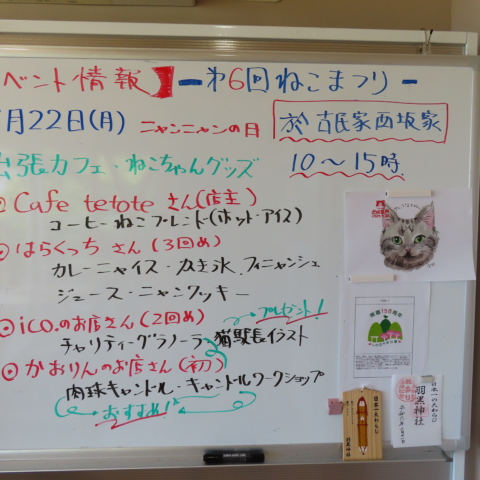 ベント情報】ー第6回ねこまつりー
月22日(月) ニャンニャンの日
於 古民家西坂家
10〜15時
出張カフェ・ねこちゃんグッズ
Cafe tetote さん(店主)
コーヒー ねこブレンド(ホット・アイス)
⊙はらくっち さん(3回め)
カレーニャイス・かき氷 フィニャンシェ
ジュース・ニャンクッキー
⊙ico.のお店さん(2回め)
プレゼント!
チャリティーグラノーラ 猫駅長イラスト
⊙かおりんのお店さん(初)
肉球キャンドル・キャンドルワークショップ
おすすめ!
150周年
日本一の大わらじ
羽黒神社
日本一の大わらじ
羽黒神社